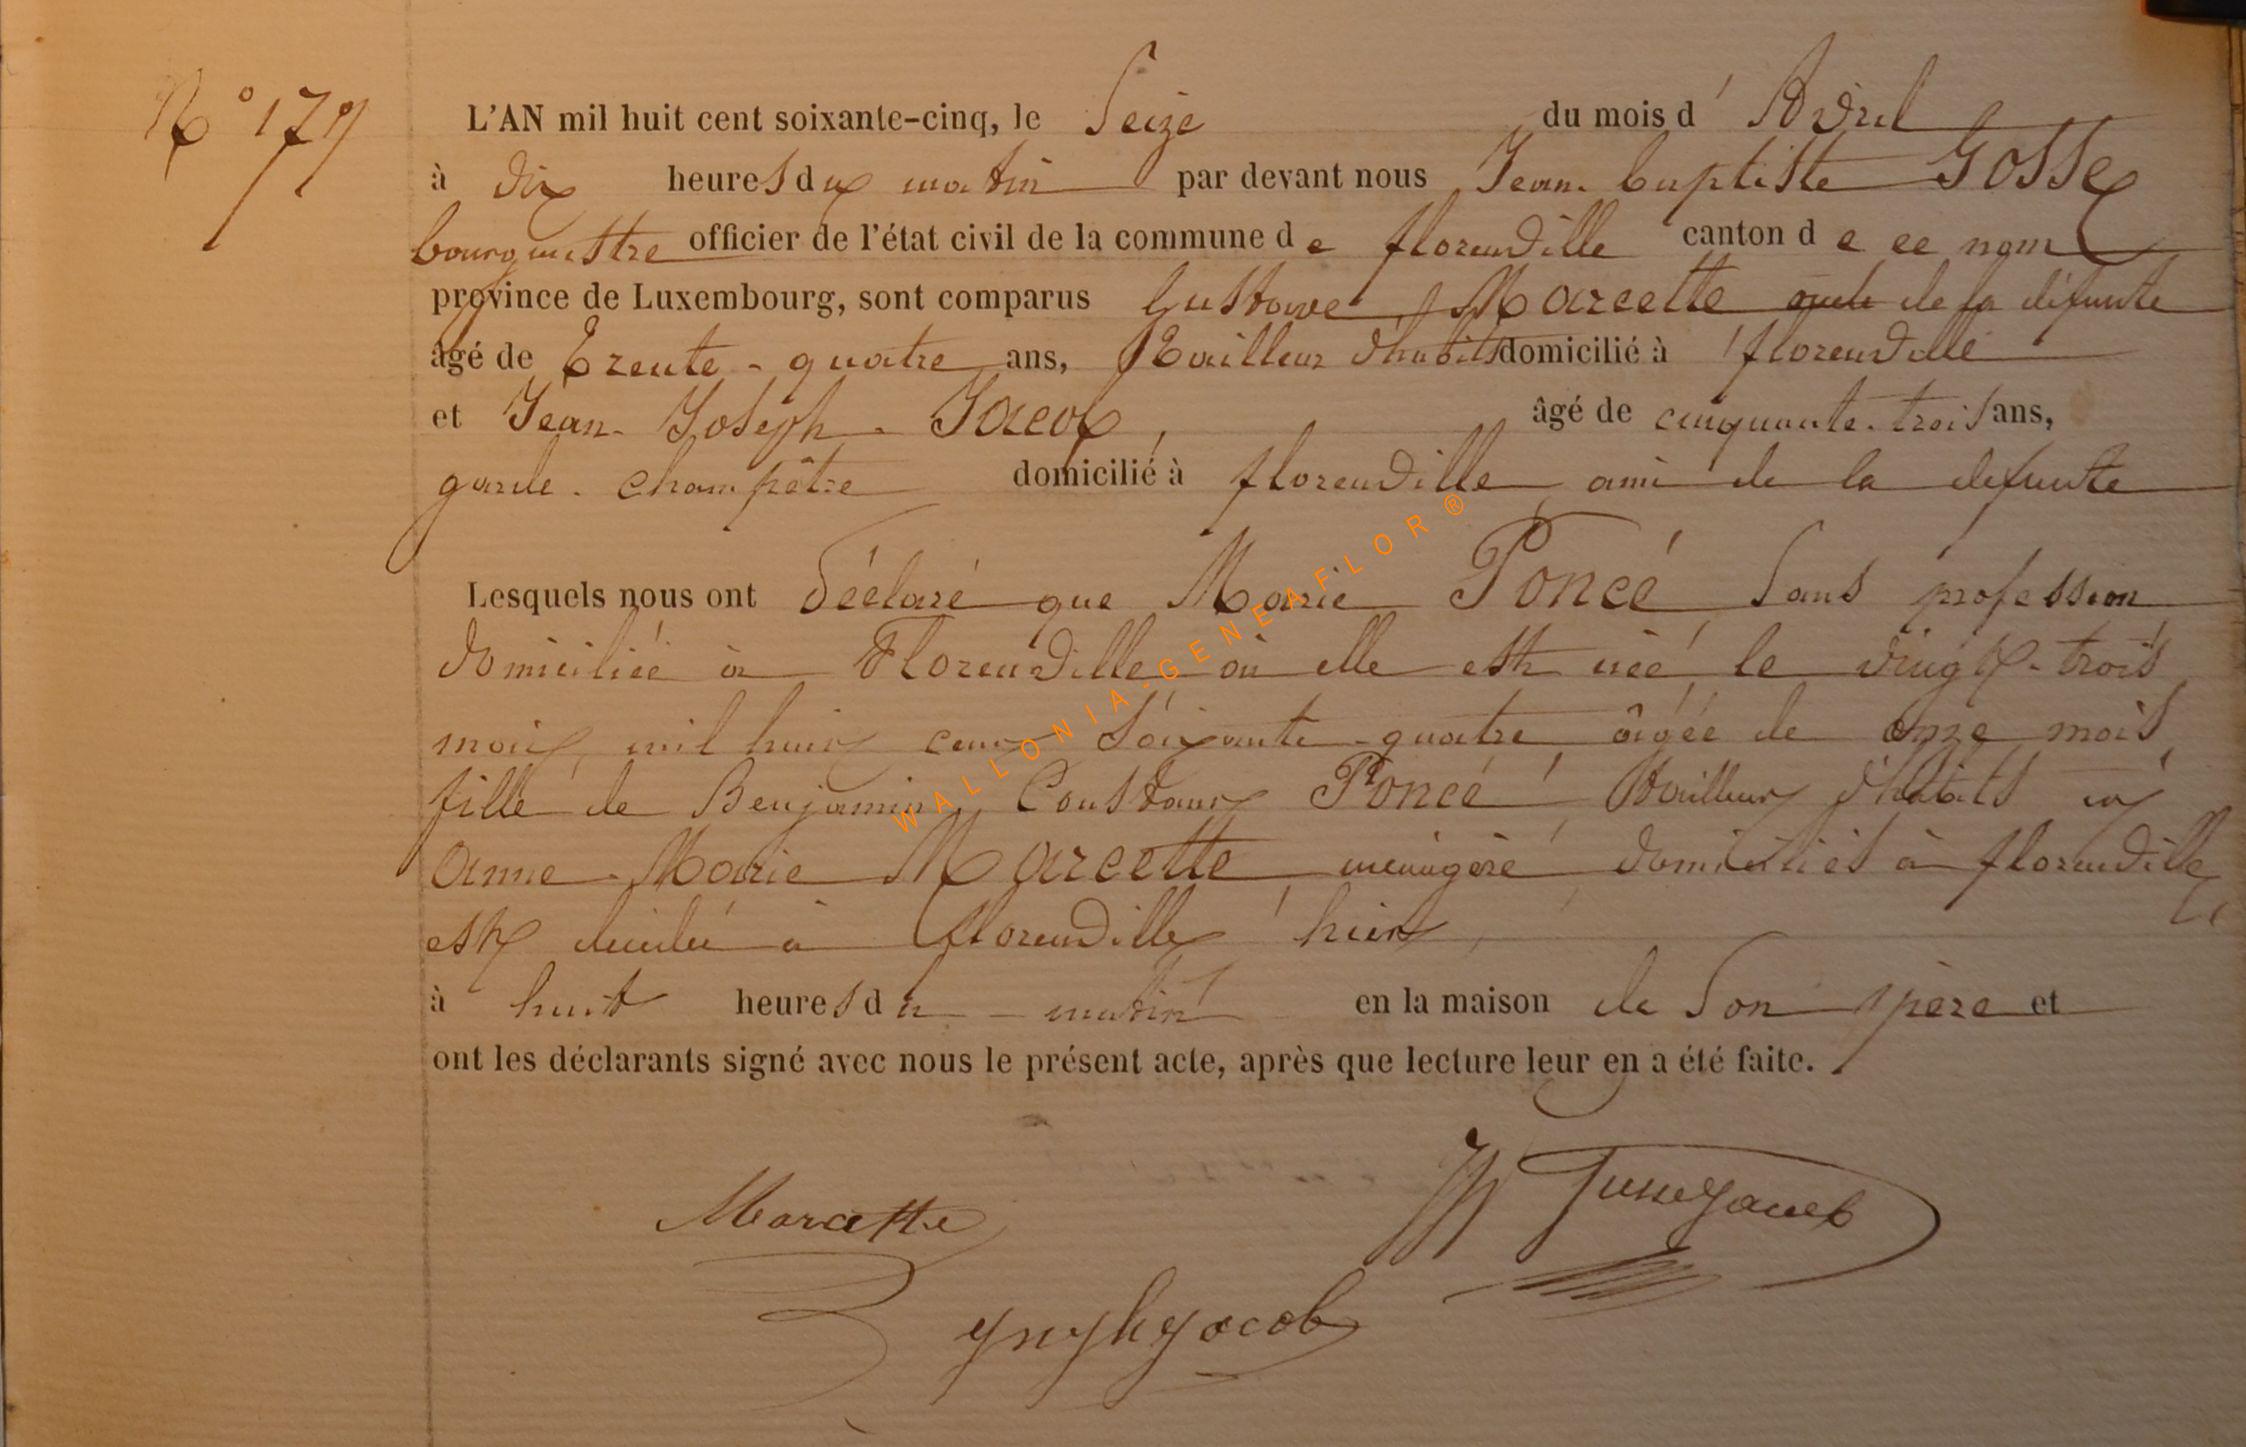 N° 17
L'AN mil huit cent soixante-cinq, le Seize du mois d' Avril
à dix heures du matin par devant nous Jean baptiste Gosse
bourgmestre officier de l'état civil de la commune de florenville canton de ce nom
province de Luxembourg, sont comparus Gustave Marcette oncle de la défunte
âgé de trente-quatre ans, tailleur d'habits domicilié à florenville
et Jean-Joseph-Jacob, âgé de cinquante-trois ans,
garde-champêtre domicilié à florenville ami de la defunte
Lesquels nous ont déclaré que Marie Poncé Sans profession
domiciliée à Florenville où elle est née le vingt-trois
mai, mil huit cent soixante-quatre âgée de onze mois,
fille de Benjamin Constant Poncé, tailleur d'habits et
anne-Marie Marcette, ménagère domiciliés à florenville,
est décédée à florenville, hier,
à huit heures du matin en la maison de Son père et
ont les déclarants signé avec nous le présent acte, après que lecture leur en a été faite.
Marcette
Jacob
WALLONIA-GENEAFLOR®